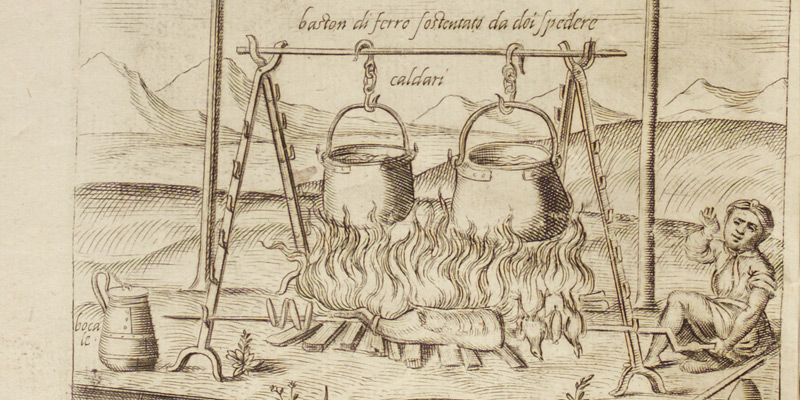 baston di ferro sostentato da doi spedere
caldari
boca
le